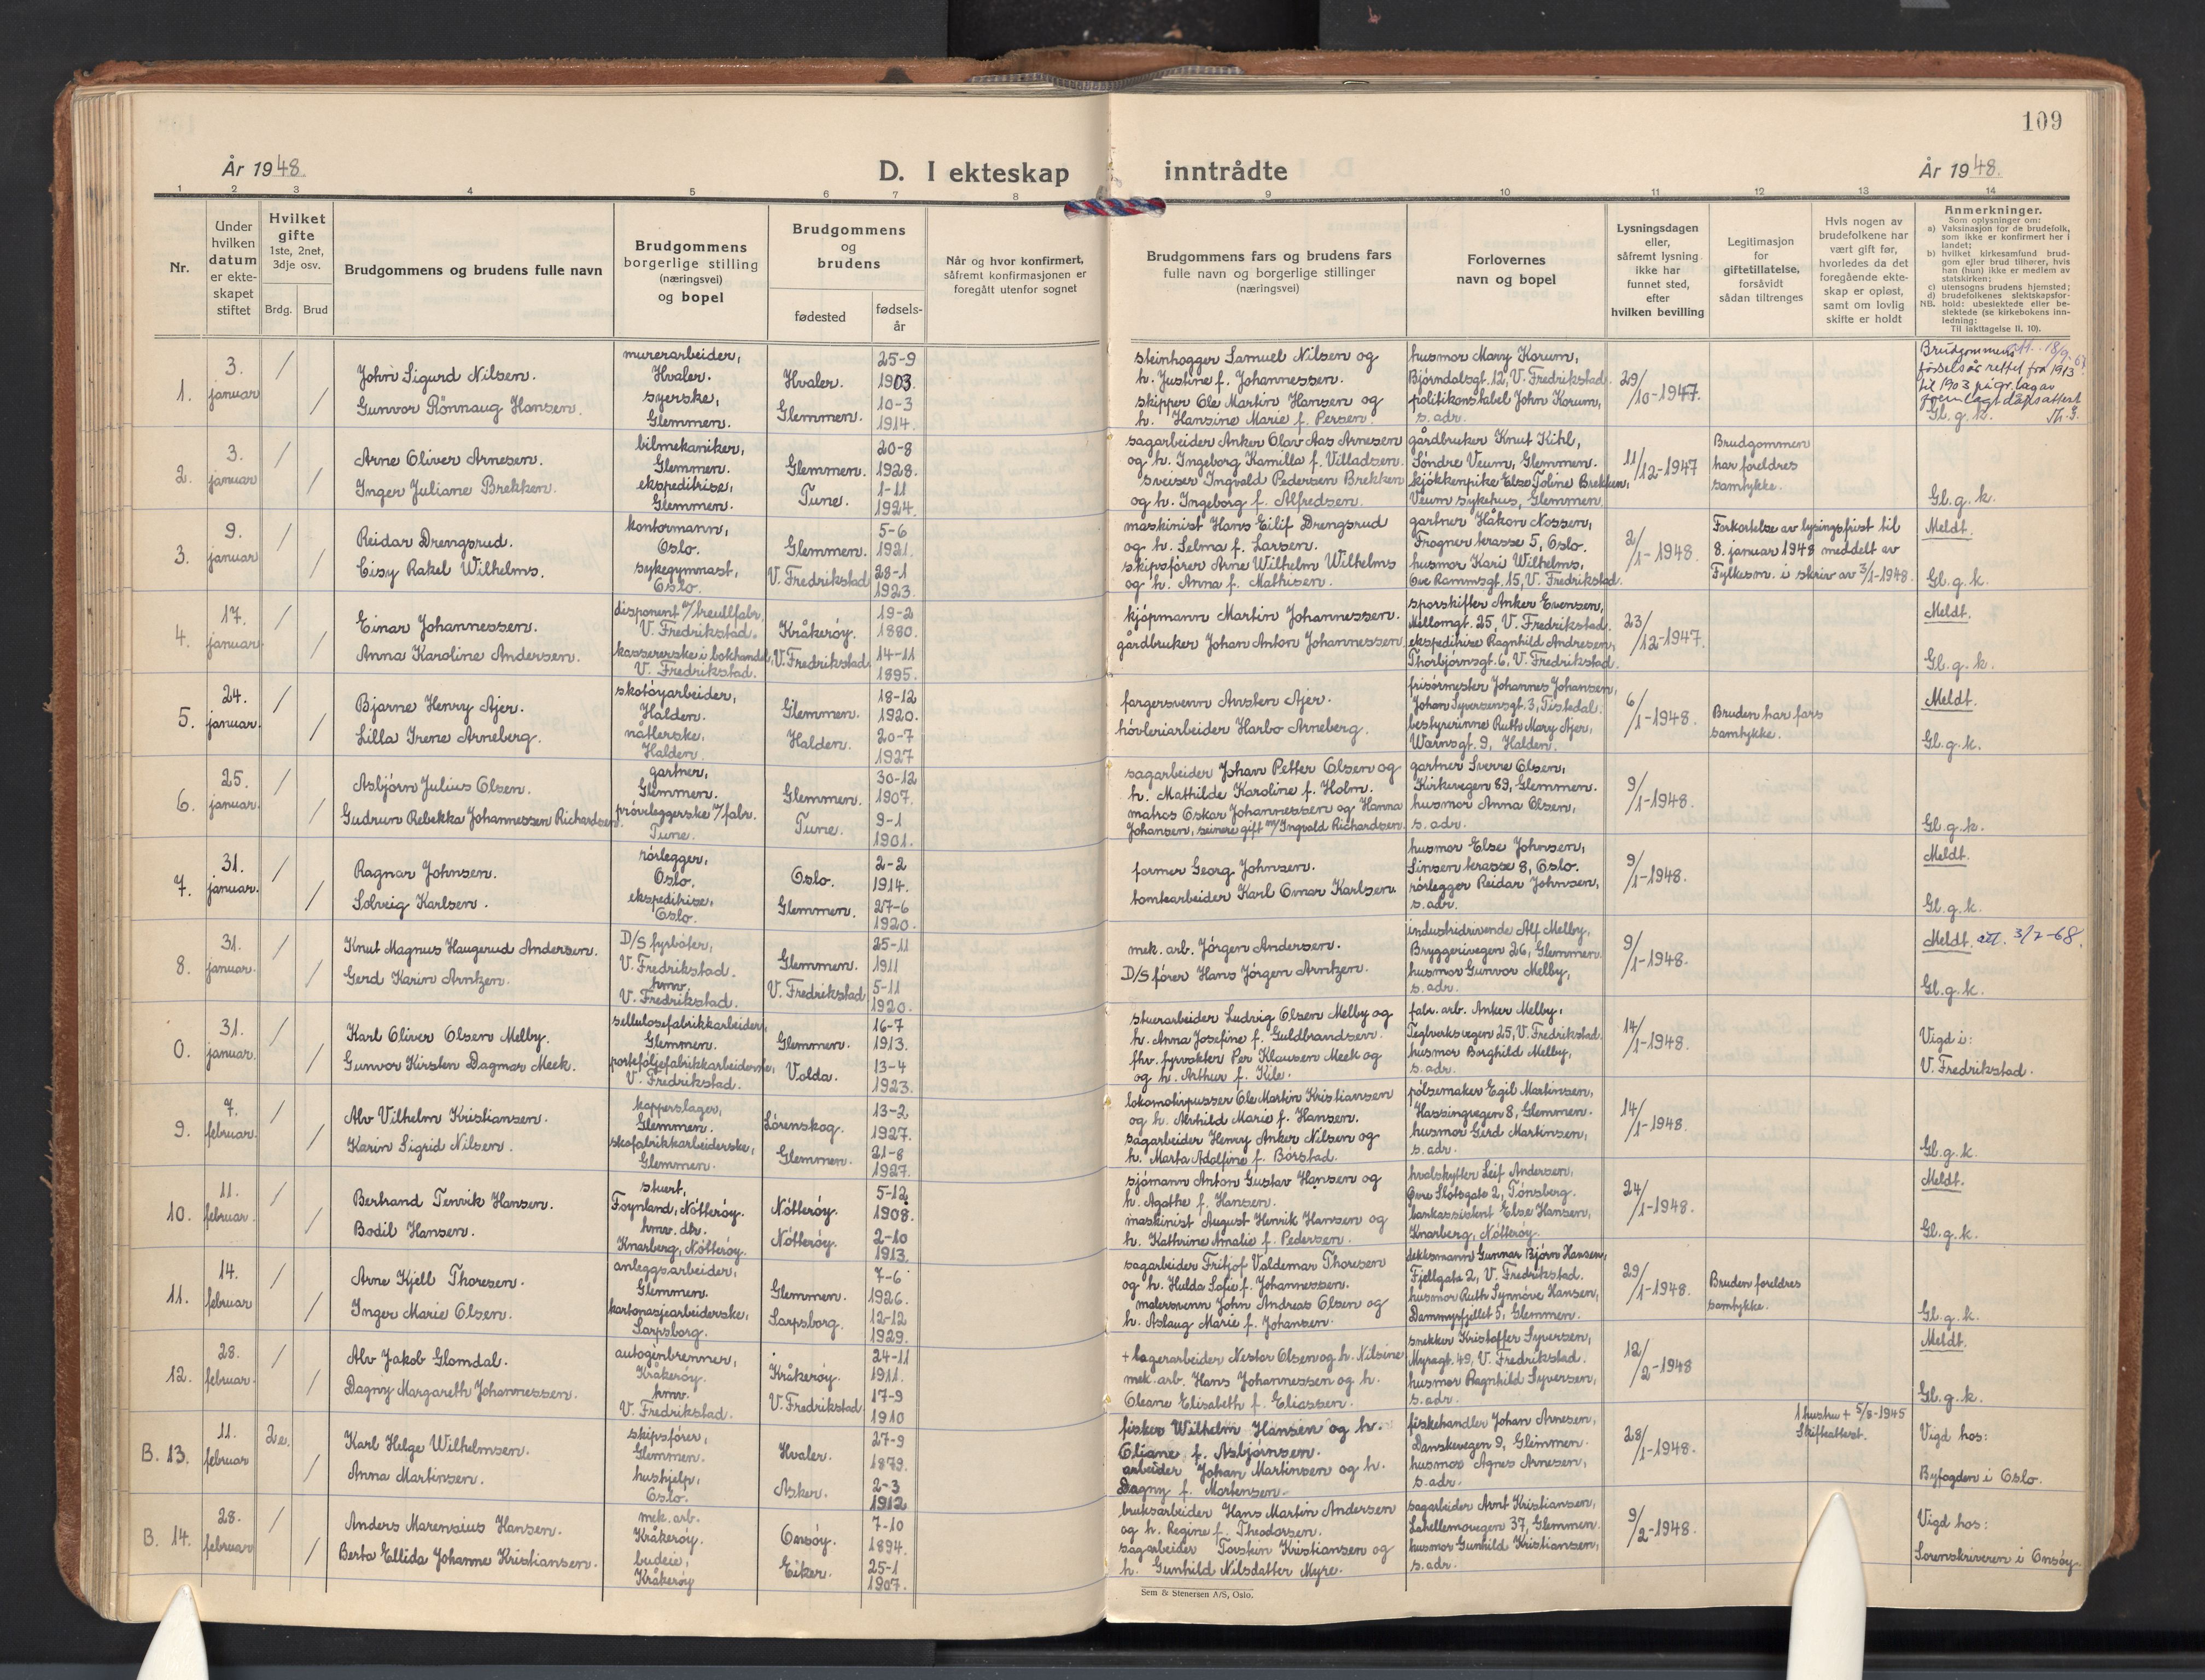 109
År 1948.
D. I ekteskap inntrådte
År 1948.
1 2 3 4 5 6 7 8 9 10 11 12 13 14
Nr.
Under hvilken datum er ekteskapet stiftet
Hvilket gifte
1ste, 2net, 3dje osv.
Brdg. Brud
Brudgommens og brudens fulle navn
Brudgommens borgerlige stilling (næringsvei) og bopel
Brudgommens og brudens
fødested
fødselsår
Når og hvor konfirmert, såfremt konfirmasjonen er foregått utenfor sognet
Brudgommens fars og brudens fars fulle navn og borgerlige stillinger (næringsvei)
Forlovernes navn og bopel
Lysningsdagen eller, såfremt lysning ikke har funnet sted, efter hvilken bevilling
Legitimasjon for giftetillatelse, forsåvidt sådan tiltrenges
Hvis nogen av brudefolkene har vært gift før, hvorledes da det foregående ekteskap er opløst, samt om lovlig skifte er holdt
Anmerkninger.
Som oplysninger om:
a) Vaksinasjon for de brudefolk, som ikke er konfirmert her i landet;
b) hvilket kirkesamfund brudgom eller brud tilhører, hvis han (hun) ikke er medlem av statskirken;
c) utensogns brudens hjemsted;
d) brudefolkenes slektskapsforhold: ubeslektede eller beslektede (se kirkebokens innledning:
NB. Til iakttagelse II. 10).
1. 3. januar / /
John Sigurd Nilsen.
Gunvor Rønnaug Hansen.
murerarbeider,
Hvaler.
syerske,
Glemmen.
Hvaler. 25-9 1903
Glemmen. 10-3 1914.
steinhogger Samuel Nilsen og
h. Justine f. Johannessen.
skipper Ole Martin Hansen og
h. Hansine Marie f. Persen.
husmor Mary Korum,
Bjørndalsgt. 12, V. Fredrikstad.
politikonstabel John Korum,
s. adr.
29/10-1947.
Brudgommens
fødselsår rettet fra 1913
til 1903 på gr.lag av
fremlagt dåpsattest
Gl. g. k. Th. G.
2. 3. januar / /
Arne Oliver Arnesen.
Inger Juliane Brekken.
bilmekaniker,
Glemmen.
ekspeditrise,
Glemmen.
Glemmen. 20-8 1928.
Tune. 1-11 1924.
sagarbeider Anker Olav Aas Arnesen
og h. Ingeborg Kamilla f. Villadsen.
sveiser Ingvald Pedersen Brekken
og h. Ingeborg f. Alfredsen.
gårdbruker Knut Kihl,
Søndre Veum, Glemmen.
kjøkkenpike Else Toline Brekken,
Veum sykehus, Glemmen.
11/12-1947
Brudgommen
har foreldres
samtykke.
Gl. g. k.
3. 9. januar / /
Reidar Drengsrud.
Eisy Rakel Wilhelms.
kontormann,
Oslo.
sykegymnast,
Oslo.
Glemmen. 5-6 1921.
V. Fredrikstad 28-1 1923.
maskinist Hans Eilif Drengsrud
og h. Selma f. Larsen.
skipsfører Arne Wilhelm Wilhelms
og h. Anna f. Mathisen.
gartner Håkon Nossen,
Frogner terasse 5, Oslo.
husmor Kari Wilhelms,
Ove Rammsgt. 15, V. Fredrikstad.
2/1-1948.
Forkortelse av lysingsfrist til
8. januar 1948 meddelt av
Fylkesm. i skriv av 3/1-1948.
Meldt.
Gl. g. k.
4. 17. januar / /
Einar Johannessen.
Anna Karoline Andersen.
disponent v/treullfabr.
V. Fredrikstad.
kassererske i bokhandel,
V. Fredrikstad.
Kråkerøy. 19-2 1880.
V. Fredrikstad 14-11 1895.
kjøpmann Martin Johannessen.
gårdbruker Johan Anton Johannessen.
sporskifter Anker Evensen,
Mellomgt. 25, V. Fredrikstad.
ekspeditrise Ragnhild Andresen,
Thorbjørnsgt. 6, V. Fredrikstad.
23/12-1947.
Meldt.
Gl. g. k.
5. 24. januar. / /
Bjarne Henry Ajer.
Lilla Irene Arneberg.
skotøyarbeider,
Halden.
nåtlerske,
Halden.
Glemmen. 18-12 1920.
Halden. 20-7 1927
fargersvenn Austen Ajer.
høvleriarbeider Harbo Arneberg.
frisørmester Johannes Johansen,
Johan Syversensgt. 3, Tistedal.
bestyrerinne Ruth Mary Ajer,
Warnsgt. 9, Halden.
6/1-1948.
Bruden har fars
samtykke.
Meldt.
Gl. g. k.
6. 25. januar. / /
Asbjørn Julius Olsen.
Gudrun Rebekka Johannessen Richardsen.
gartner,
Glemmen.
prøveleggerske v/fabr.
Tune.
Glemmen. 30-12 1907.
Tune. 9-1 1901.
sagarbeider Johan Petter Olsen og
h. Mathilde Karoline f. Holm.
matros Oskar Johannessen og Hanna
Johansen, seinere gift m/Ingvald Richardsen.
gartner Sverre Olsen,
Kirkevegen 89, Glemmen.
husmor Anna Olsen,
s. adr.
9/1-1948.
Gl. g. k.
7. 31. januar. / /
Ragnar Johnsen.
Solveig Karlsen.
rørlegger,
Oslo.
ekspeditrise,
Oslo.
Oslo. 2-2 1914.
Glemmen. 27-6 1920.
former Georg Johnsen.
tomtearbeider Karl Omar Karlsen.
husmor Else Johnsen,
Sinsen terasse 8, Oslo.
rørlegger Reidar Johnsen,
s. adr.
9/1-1948.
Meldt.
Gl. g. k.
8. 31. januar. / /
Knut Magnus Haugerud Andersen.
Gerd Karin Arntzen.
D/S fyrbøter,
V. Fredrikstad.
hmv.
V. Fredrikstad.
Glemmen. 25-11 1911
V. Fredrikstad 5-11 1920.
mek. arb. Jørgen Andersen.
D/S fører Hans Jørgen Arntzen.
industridrivende Alf Melby,
Bryggerivegen 26, Glemmen.
husmor Gunvor Melby,
s. adr.
9/1-1948.
Meldt. att. 3/7-68.
Gl. g. k.
0. 31. januar. / /
Karl Oliver Olsen Melby.
Gunvor Kirsten Dagmar Meek.
sellulosefabrikkarbeider,
Glemmen.
portefoljefabrikkarbeiderske,
V. Fredrikstad.
Glemmen. 16-7 1913.
Volda. 13-4 1923.
stuerarbeider Ludvig Olsen Melby og
h. Anna Josefine f. Guldbrandsen.
fhv. fyrvokter Per Klausen Meek og
og h. Arthur f. Kile.
fabr. arb. Anker Melby,
Teglverksvegen 25, V. Fredrikstad.
husmor Borghild Melby,
s. adr.
14/1-1948.
Vigd i:
V. Fredrikstad.
9. 7. februar. / /
Alv Vilhelm Kristiansen.
Karin Sigrid Nilsen.
kopperslager,
Glemmen.
skofabrikkarbeiderske,
Glemmen.
Lørenskog. 13-2 1927.
Glemmen. 21-8 1927.
lokomotivpusser Ole Martin Kristiansen
og h. Marie f. Hansen.
sagarbeider Henry Anker Nilsen og
h. Marta Adolfine f. Børstad.
pølsemaker Egil Martinsen,
Hassingvegen 8, Glemmen.
husmor Gerd Martinsen,
s. adr.
14/1-1948.
Gl. g. k.
10. 11. februar. / /
Bertrand Tenvik Hansen.
Bodil Hansen.
stuert,
Føynland, Nøtterøy.
hmv. dtr.
Knarberg, Nøtterøy.
Nøtterøy. 5-12 1908.
Nøtterøy. 2-10 1913.
sjømann Anton Gustav Hansen og
h. Agathe f. Hansen.
maskinist August Henrik Hansen og
h. Kathrine Amalie f. Pedersen.
hvalskytter Leif Andersen,
Øvre Slotsgate 2, Tønsberg.
bankassistent Else Hansen,
Knarberg, Nøtterøy.
24/1-1948.
Meldt.
Gl. g. k.
11. 14. februar / /
Arne Kjell Thoresen.
Inger Marie Olsen.
anleggsarbeider,
Glemmen.
kartonasjearbeiderske,
Sarpsborg.
Glemmen. 7-6 1926.
Sarpsborg. 12-12 1929.
sagarbeider Fritjof Valdemar Thoresen
og h. Hulda Sofie f. Johannessen.
malersvenn John Andreas Olsen og
h. Aslaug Marie f. Johansen.
dekksmann Gunnar Bjørn Hansen,
Fjellgata 2, V. Fredrikstad.
husmor Ruth Synnøve Hansen,
Dammysfjellet 5, Glemmen.
29/1-1948.
Bruden foreldres
samtykke.
Gl. g. k.
12. 28. februar. / /
Alv Jakob Glomdal.
Dagny Margareth Johannessen.
autogenbrenner,
Kråkerøy.
hmv.
V. Fredrikstad.
Kråkerøy. 24-11 1911.
V. Fredrikstad 17-9 1910
+ lagerarbeider Nestor Olsen og h. Nilsine
mek. arb. Hans Johannessen og h.
Oleane Elisabeth f. Eliassen.
snekker Kristoffer Syversen,
Myragt. 49, V. Fredrikstad.
husmor Ragnhild Syversen,
s. adr.
12/2-1948
Meldt.
Gl. g. k.
B. 13. 11. februar 2. /
Karl Helge Wilhelmsen.
Anna Martinsen.
skipsfører,
Glemmen.
hushjelp,
Oslo.
Hvaler. 27-9 1879.
Asker. 2-3 1912
fisker Wilhelm Hansen og h.
Oliane f. Asbjørnsen.
arbeider Johan Martinsen og h.
Dagny f. Mortensen.
fiskehandler Johan Arnesen,
Danskevegen 9, Glemmen.
husmor Agnes Arnesen,
s. adr.
28/1-1948.
1 hustru + 5/8-1945
Skifteattest.
Vigd hos:
Byfogden i Oslo.
B. 14. 28. februar / /
Anders Marensius Hansen.
Berta Ellida Johanne Kristiansen.
mek. arb.
Kråkerøy.
budeie,
Kråkerøy
Onsøy. 7-10 1894.
Eiker. 25-1 1907.
bruksarbeider Hans Martin Andersen
og h. Regine f. Theodorsen.
sagarbeider Torstein Kristiansen og
h. Gunhild Nilsdatter Myre.
sagarbeider Arnt Kristiansen,
Lahellemovegen 37, Glemmen.
husmor Gunhild Kristiansen,
s. adr.
9/2-1948.
Vigd hos:
Sorenskriveren i Onsøy.
Sem & Stenersen A/S, Oslo.